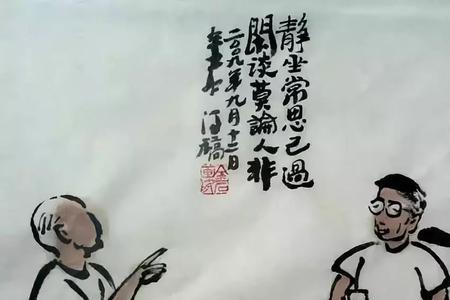 静坐常思己過
閑谈莫論人非
二〇〇九年九月十二日